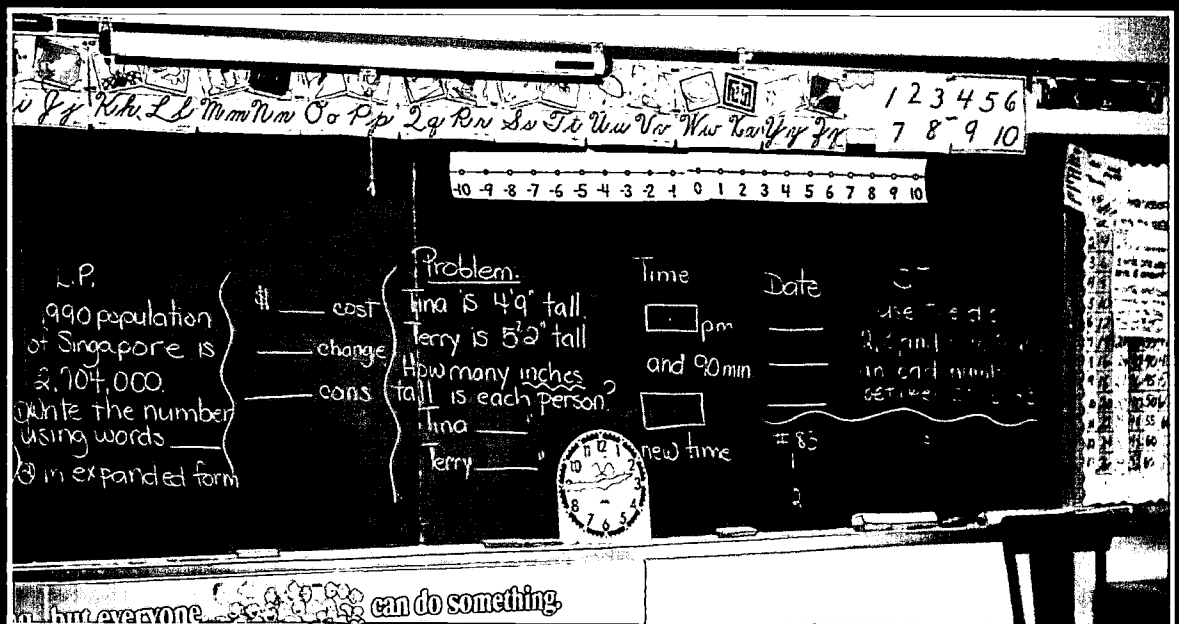 j Jj Kk Ll Mm Nn Oo Pp Qq Rr Ss Tt Uu Vv Ww Xx Yy Zz
1 2 3 4 5 6
7 8 9 10
-10 -9 -8 -7 -6 -5 -4 -3 -2 -1 0 1 2 3 4 5 6 7 8 9 10
L.P.
990 population
of Singapore is
2,704,000.
① Write the number
using words ____
② in expanded form
$ ____ cost
____ change
____ coins
Problem.
Tina is 4'9" tall.
Terry is 5'2" tall
How many inches
tall is each person?
Tina ____"
Terry ____"
Time
pm
and 90 min.
new time
Date
#83
1
2
12 1 2 3 4 5 6 7 8 9 10 11
but everyone can do something.